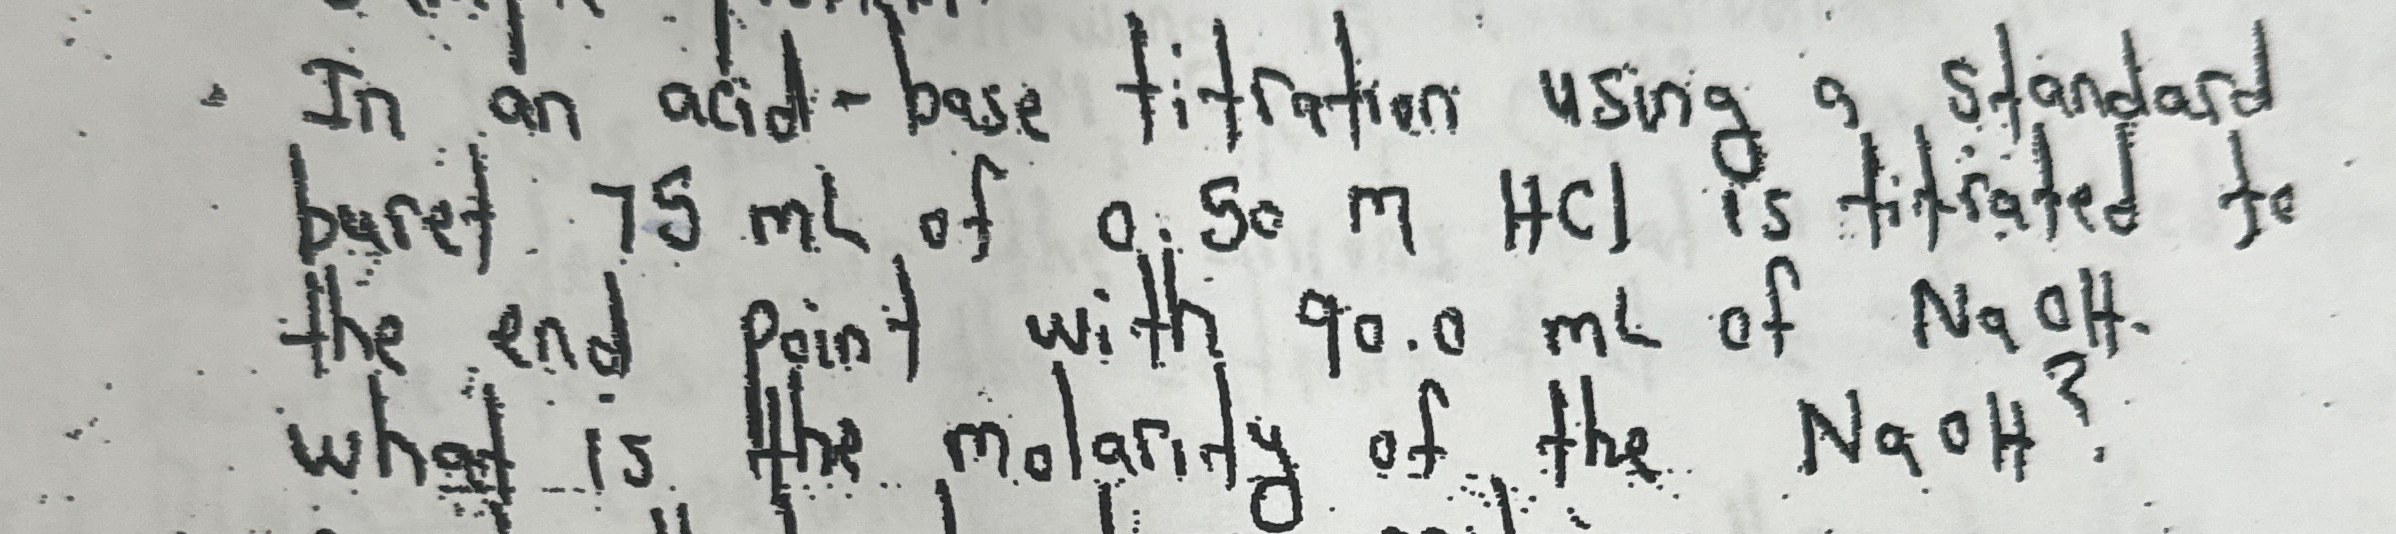 In an acid-base titration using a standard
buret 75 mL of 0.50 M HCl is titrated to
the end point with 90.0 mL of NaOH.
what is the molarity of the NaOH?